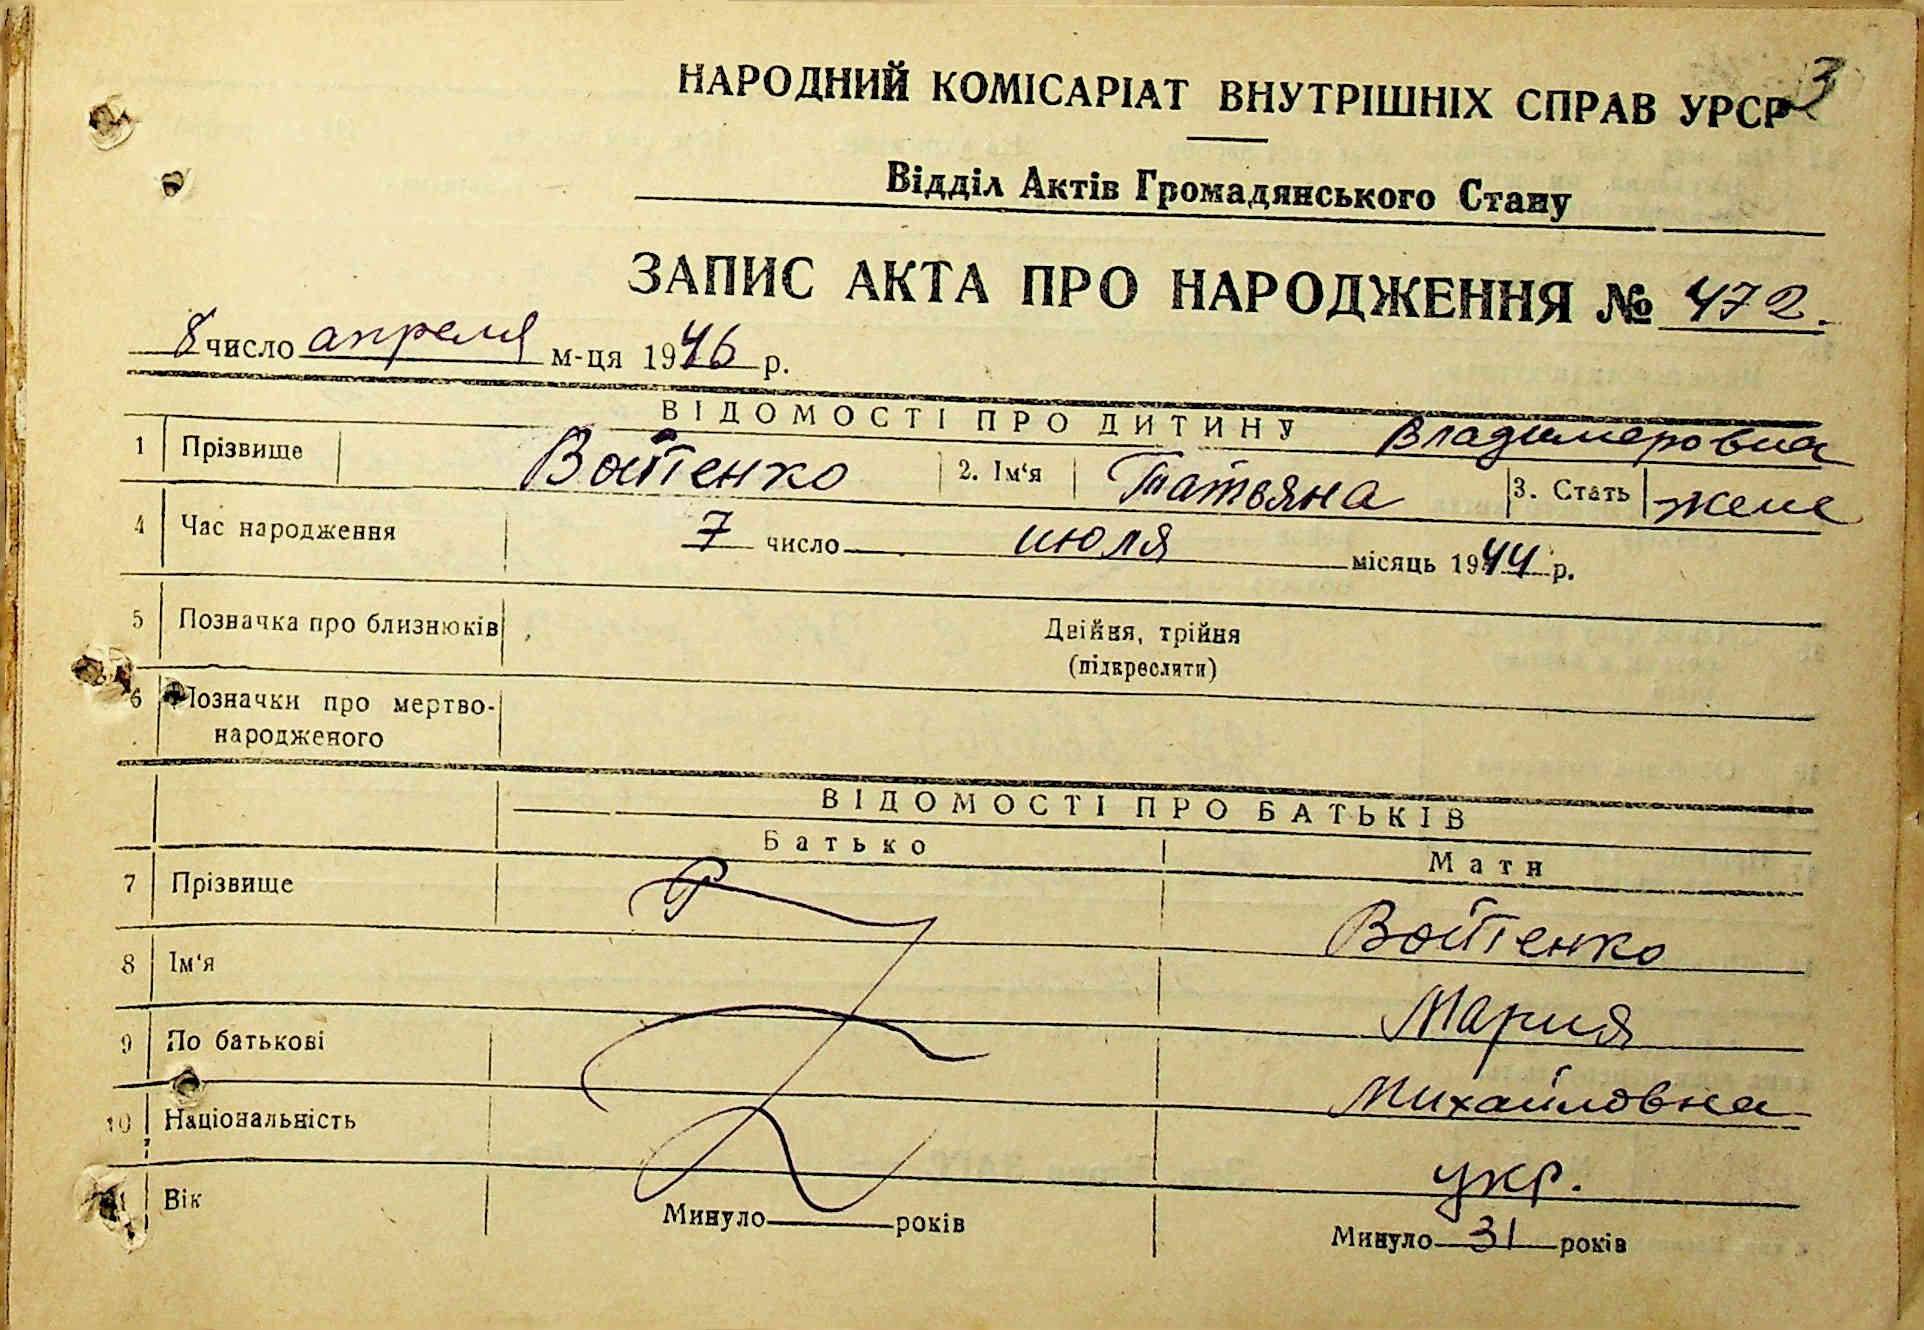 3
НАРОДНИЙ КОМІСАРІАТ ВНУТРІШНІХ СПРАВ УРСР
Відділ Актів Громадянського Стану
ЗАПИС АКТА ПРО НАРОДЖЕННЯ № 472.
8 число апреля м-ця 1946 р.
ВІДОМОСТІ ПРО ДИТИНУ
Владимировна
1 Прізвище Войтенко 2. Ім'я Татьяна 3. Стать жен
4 Час народження 7 число июля місяць 1944 р.
5 Позначка про близнюків Двійня, трійня
(підкреслити)
6 Позначки про мертво-
народженого
ВІДОМОСТІ ПРО БАТЬКІВ
Батько Мати
7 Прізвище Войтенко
8 Ім'я Мария
9 По батькові Михайловна
10 Національність укр.
11 Вік Минуло років Минуло 31 років